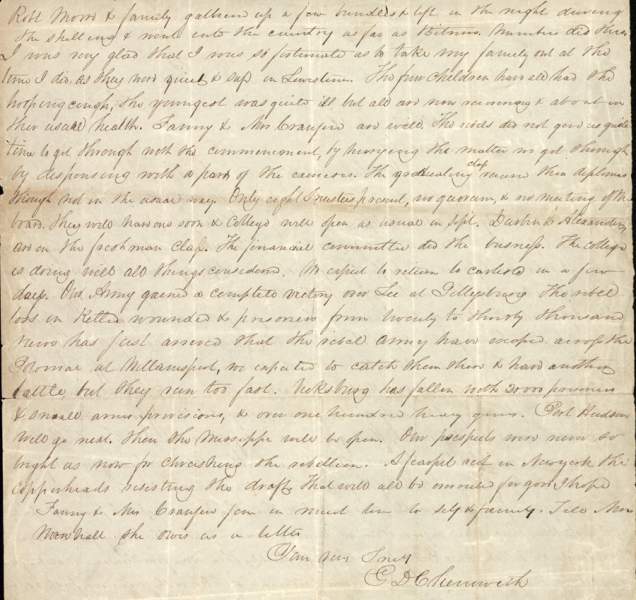 Robt Morris & family gathered up a few bundles & left in the night during
the shelling & went into the country as far as Numbers did this
I was very glad that I was so fortunate as to take my family out at the
time I did as they were quiet & safe in Lewistown. The four children have all had the
hooping cough, the youngest was quite ill but all are now recovering & about in
their usual health. Fanny & Mrs Cranford are well. The rebels did not give us quite
time to get through with the commencement, by hurrying the matter we got through
by dispensing with a part of the exercises. The graduating class received their diplomas
though not in the usual way. Only eight Trustees present, no quorum, & no meeting of the
board. They will have one soon & College will open as usual in Sept. & Alexander
are in the freshman class. The financial committee did the business. The college
is doing well all things considered. We expect to return to Carlisle in a few
days. Our Army gained a complete victory over Lee at Gettysburg the rebel
loss in killed wounded & prisoners from twenty to thirty thousand
news has just arrived that the rebel army have escaped across the
Potomac at Williamsport, we expected to catch them there & have another
battle, but they run too fast. Vicksburg has fallen with prisoners
& small arms provisions, & over one hundred heavy guns. Port Hudson
will go next. Then the Mississippi will be open. Our prospects were never so
bright as now for crushing the rebellion. A fearful riot in New York the
Copperheads resisting the draft, that will all be for good I hope
Fanny & Mrs Cranford join in much love to self & family. Tell Mrs
Marshall she owes us a letter
Your very Truly
E D Chenowith